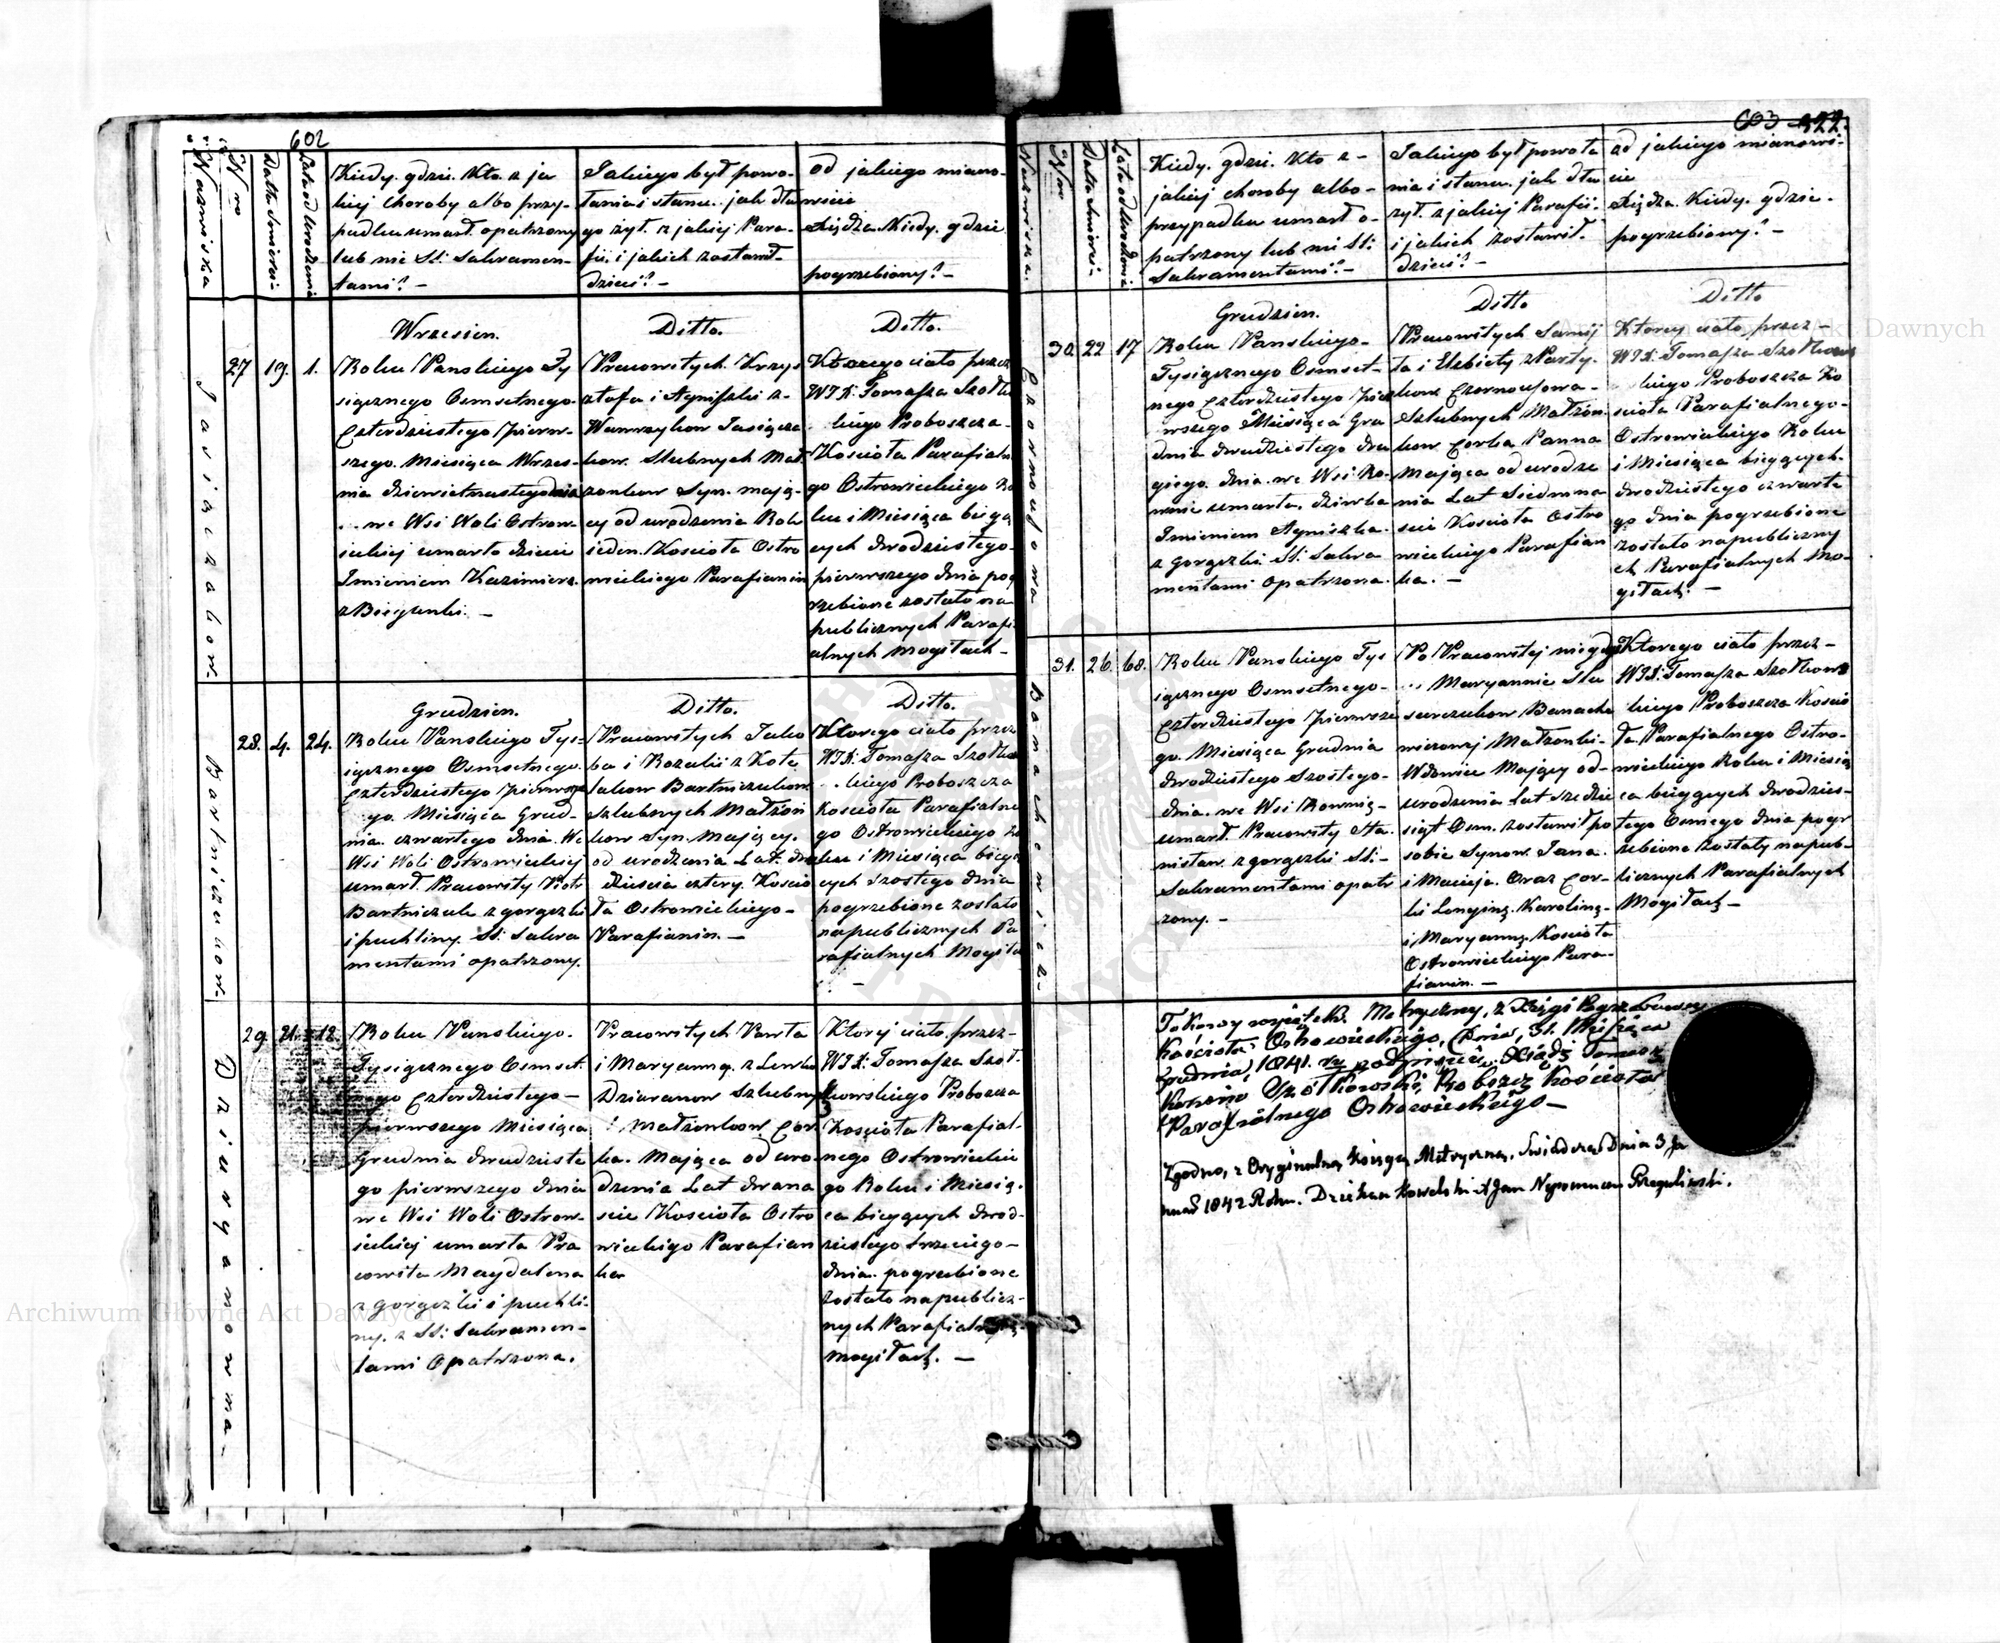 602
Nazwiska
Nro
Datta Smierci
Lata od Urodzenia
Kiedy. gdzie. Kto. z ja
kiej choroby albo przy-
padku umarł. opatrzony
lub nie SS: Sakramen-
tami? -
Jakiego był powo-
łania i stanu. jak dłu
go żył. z jakiej Para-
fii. i jakich zostawił-
dzieci? -
od jakiego miano-
wicie
Xiędza. Kiedy. gdzie
pogrzebiony? -
Jasiączakow.
27
19.
1.
Wrzesien.
Roku Panskiego Ty
siącznego Osmsetnego-
Czterdziestego Pierw-
szego. Miesiąca Wrzes-
nia dziewietnastego dnia
we Wsi Woli Ostrow-
ieckiej umarło dziecie
Imieniem Kazimierz.
z Biegunki. -
Ditto.
Pracowitych Krzys
ztofa i Agniszki z-
Wawrzykow Jasiącza
kow. Slubnych Mał.
zonkow Syn. mają-
cy od urodzenia Rok
ieden. Kosciota Ostro
wieckiego Parafianin
Ditto.
Ktorego ciało przez
WIX: Tomasza Szołko
kiego Proboszcza-
Kosciota Parafialne
go Ostrowieckiego Ro
ku i Miesiąca bieżą
cych dwodziestego-
pierwszego dnia pog
rzebione zostało na
publicznych Parafi
alnych Mogiłach -
Bartniczukow.
28.
4.
24.
Grudzien.
Roku Panskiego Tys-
iącznego Osmsetnego.
Czterdziestego Pierwsze
go. Miesiąca Grud-
nia. czwartego dnia. We
Wsi Woli Ostrowieckiej
umarł. Pracowity Piotr
Bartniczuk z gorączki
i puchliny. SS: Sakra
mentami opatrzony.
Ditto.
Pracowitych Jako
ba i Rozalii z Kote
lukow Bartniczukow
Szlubnych Małżon
kow Syn. Mający.
od urodzenia Lat. dwa
dziescia cztery. Koscio
ła Ostrowieckiego-
Parafianin. -
Ditto.
Ktorego ciało przez
WIX: Tomasza Szołko
kiego Proboszcza
Kosciota Parafialne
go Ostrowieckiego Ro
ku i Miesiąca bieżą
cych Szostego dnia
pogrzebione zostało
na publicznych Pa
rafialnych Mogiła
-
Dziurganowna-
29.
21.
12.
Roku Panskiego.
Tysiącznego Osmset.
nego Czterdziestego-
pierwszego Miesiąca
Grudnia dwudzieste
go pierwszego dnia
we Wsi Woli Ostrow-
ieckiej umarła Pra
cowita Magdalena
z gorączki i puchli-
ny. z SS: Sakramen-
tami Opatrzona.
Pracowitych Pawła
i Maryanny. z
Szlubny
Małzonkow Cor
ka. Mająca od uro-
dzenia Lat dwana
scie Kosciota Ostro
wieckigo Parafian
ka
Ktorej ciało. przez-
WIX: Tomasza Szoł.
kowskiego Proboszcza
Kosciota Parafial-
nego Ostrowieckie
go Roku i Miesią.
ca bieżących dwod-
ziestego trzeciego-
dnia. pogrzebione
zostało na publicz-
nych Parafialnych
Mogiłach. -
603
Nazwiska.
Nro
Datta Smierci-
Lata od Urodzenia
Kiedy. gdzie. Kto z-
jakiej choroby albo-
przypadku umarł o-
patrzony lub nie SS:
Sakramentami? -
Jakiego był powoła
nia i stanu. jak dłu
żył. z jakiej Parafii-
i jakich zostawił.
dzieci? -
od jakiego mianowi-
cie
Xiędza. Kiedy. gdzie-
pogrzebiony? -
30.
22
17
Grudzien.
Roku Panskiego-
Tysiącznego Osmset-
nego Czterdziestego Pier
wszego Miesiąca Gru
dnia dwudziestego dru
giego. dnia. we Wsi Ro-
wnie umarła. dziewka
Imieniem Agniszka.
z Gorączki SS: Sakra
mentami Opatrzona.
Ditto
Pracowitych
ta i Elzbiety z Party-
kow.
Szlubnych Małżon-
kow Corka Panna
Mająca od urodze
nia Lat Siedmna
scie Kosciota Ostro
wieckiego Parafian
ka. -
Ditto
Ktorey ciało przez-
WIX: Tomasza Szołkows
kiego Proboszcza Ko
sciota Parafialnego-
Ostrowieckiego Roku
i Miesiąca bieżących-
dwodziestego czwarte
go dnia pogrzebione
zostało na publiczny
ch Parafialnych Mo-
giłach. -
Banachewicz.
31.
26.
68.
Roku Panskiego Tys
iącznego Osmsetnego-
Czterdziestego pierwsze
go. Miesiąca Grudnia
dwodziestego Szostego-
dnia. we Wsi Rowniż-
umarł. Pracowity Sta.
nisław. z gorączki SS:-
Sakramentami opatr
zony. -
Po Pracowitej niegdy
Maryannie
Banache
wiczowej Małżonki-
Wdowiec Mający od-
urodzenia Lat Szedzie
siąt Osm. zostawił po
sobie Synow. Jana.
i Macieja. Oraz Cor-
ki Longiną. Karoliną-
i, Maryanną. Kosciota
Ostrowieckiego Para-
fianin. -
Ktorego ciało przez-
WIX: Tomasza Szołkows
kiego Proboszcza Koscio
ła Parafialnego Ostro-
wieckiego Roku i Miesią
ca bieżących dwodzies-
tego Osmego dnia pogr
zebione Zostały na pub-
licznych Parafialnych
Mogiłach -
Takowy wyiątek Metryczny, z Xięgi Pogrzebowey
Kościoła Ostrowieckiego, Dnia, 31. Miesiąca
Grudnia, 1841. ru podpisuię. Xiądz Tomasz
Szołkowski, Proboszcz Kościoła
Parafialnego Ostrowieckiego-
Zgodno, z Oryginalną Xsięgą Metryczną. Swiadczę Dnia 3 Ja
nuar 1842 Roku. Dziekan Kowelski X Jan Nepomucen
Archiwum Główne Akt Dawnych
Archiwum Główne Akt Dawnych